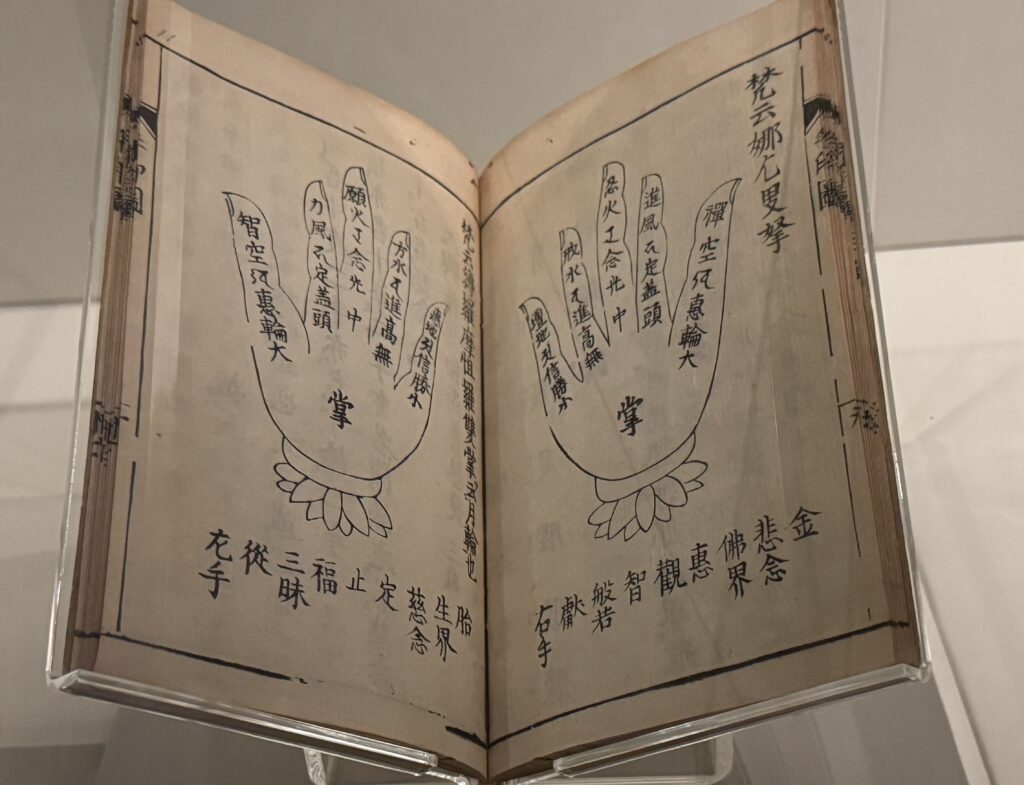 梵云娜
禪空惠輪大
進風定蓋頭
忍火念光中
戒水進高無
檀地信勝小
掌
金
悲念
佛界
惠
觀
智
般若
獻
右手
梵云羅摩恒羅雙掌云月輪也
慧地信勝小
方水進高無
願火念光中
力風定蓋頭
智空惠輪大
掌
胎
生界
慈念
定
止
福
三昧
從
左手